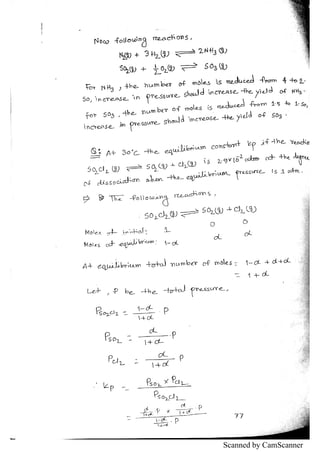 Now following reactions,
N2(g) + 3H2(g) ⇌ 2NH3(g)
SO2(g) + ½O2(g) ⇌ SO3(g)
For NH3, the number of moles is reduced from 4 to 2.
So, increase in pressure should increase the yield of NH3.
for SO3, the number of moles is reduced from 1.5 to 1. So,
increase in pressure should increase the yield of SO3.
Q: At 30°C the equilibrium constant Kp if the reactio
SO2Cl2(g) ⇌ SO2(g) + Cl2(g) is 2.9×10⁻² atm at the degree
of dissociation when the equilibrium pressure is 1 atm.
⇒ The following reactions,
SO2Cl2(g) ⇌ SO2(g) + Cl2(g)
Moles at initial: 1 0 0
Moles at equilibrium: 1-α α α
At equilibrium total number of moles: 1-α + α+α
= 1+α
Let, P be the total pressure,
PSO2Cl2 = 1-α/1+α · P
PSO2 = α/1+α · P
PCl2 = α/1+α P
∴ Kp = PSO2 × PCl2 / PSO2Cl2
= α/1+α P × α/1+α P / 1-α/1+α · P
77
Scanned by CamScanner